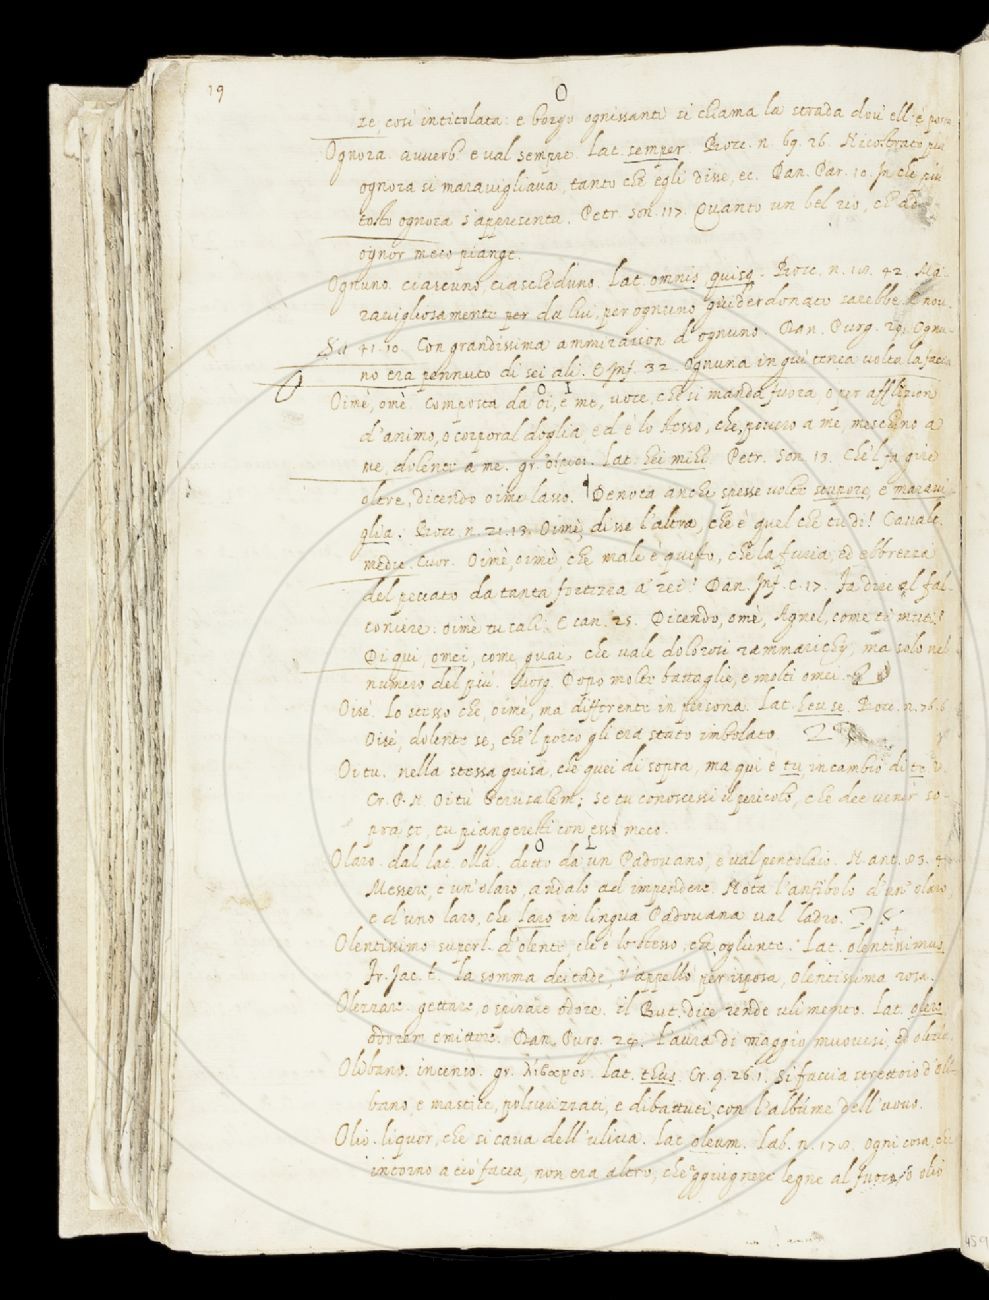 19
O
ze, così intitolata: e borgo ognissanti si chiama la strada dov'ell'è
Ognora. avverb. e val sempre. Lat. semper. Bocc. n. 69. 26. Nicostrato più
ognora si maravigliava, tanto che egli disse, ec. Dan. Par. 10. che più
tosto ognora s'appresenta. Petr. son. 117. Quanto un bel rio, ch'ad
ognor meco piange.
Ognuno. ciascuno, ciascheduno. Lat. omnis, quisq. Bocc. n. 42.
ravigliosamente per da lui, per ognuno guiderdonato sarebbe. E nov.
41. 10. Con grandissima ammirazion d'ognuno. Dan. Purg. 29. Ognu-
no era pennuto di sei ali. E Inf. 32. Ognuna in giù tenea volta la faccia
O I
Oimè, omè. Composta da oi, e me, voce, che si manda fuora, o per afflizion
d'animo, o corporal doglia, ed è lo stesso, che, povero a me, meschino a
me, dolente a me. gr. οἴμοι. Lat. hei mihi. Petr. Son. 13. Che'l fa gire
oltre, dicendo oimè lasso. Denota anche spesse volte stupore, e maravi-
glia. Bocc. n. 21. 13. Oimè, disse l'altra, che è quel che tu di! Cavalc.
medic. cuor. Oimè, oimè, che male è questo, che la furia, ed ebbrezza
del peccato da tanta fortezza a' rei! Dan. Inf. c. 17. Fa dire al fal-
coniere: oimè tu cali. E can. 25. Dicendo, omè, Agnel, come ti muti!
Di qui, omei, come, guai, che vale dolorosi rammarichi, ma solo nel
numero del più. Dopo molte battaglie, e molti omei.
Oisè. Lo stesso che, oimè, ma differente in persona. Lat. heu se. Bocc. n. 76. 6.
Oisè, dolente se, che'l porco gli era stato imbolato.
Oi tu. nella stessa guisa, che quei di sopra, ma qui è tu, in cambio di te. V.
Cr. P. N. Oi tu Jerusalem; se tu conoscessi il pericolo, che dee venir so-
pra te, tu piangeresti con esso meco.
O L
Olaro. dal lat. olla. detto da un Padovano, e val pentolaio. N. ant. 83. 4.
Messere, è un'olaro, andalo ad impendere. Nota l'anfibolo d'un'olaro,
e d'uno laro, che laro in lingua Padovana val ladro.
Olentissimo superl. d'olente, che è lo stesso, che, ogliente. Lat. olentissimus
Fr. Jac. t. la somma deitade, v'appello per isposa, olentissima rosa.
Olezzare. gettare, o spirare odore. il But. dice rende ulimento. Lat. olere,
odorem emittere. Dan. Purg. 24. L'aura di maggio muovesi, ed olezza.
Olibano. incenso. gr. λίβανος. Lat. thus. Cr. 9. 26. 1. Si faccia strettoio d'oli-
bano, e mastice, polverizzati, e dibattuti, con l'albume dell'uovo.
Olio. liquor, che si cava dell'uliva. Lat. oleum. Lab. n. 178. Ogni cosa, che
intorno a ciò facea, non era altro, che aggiugnere legne al fuoco, o olio